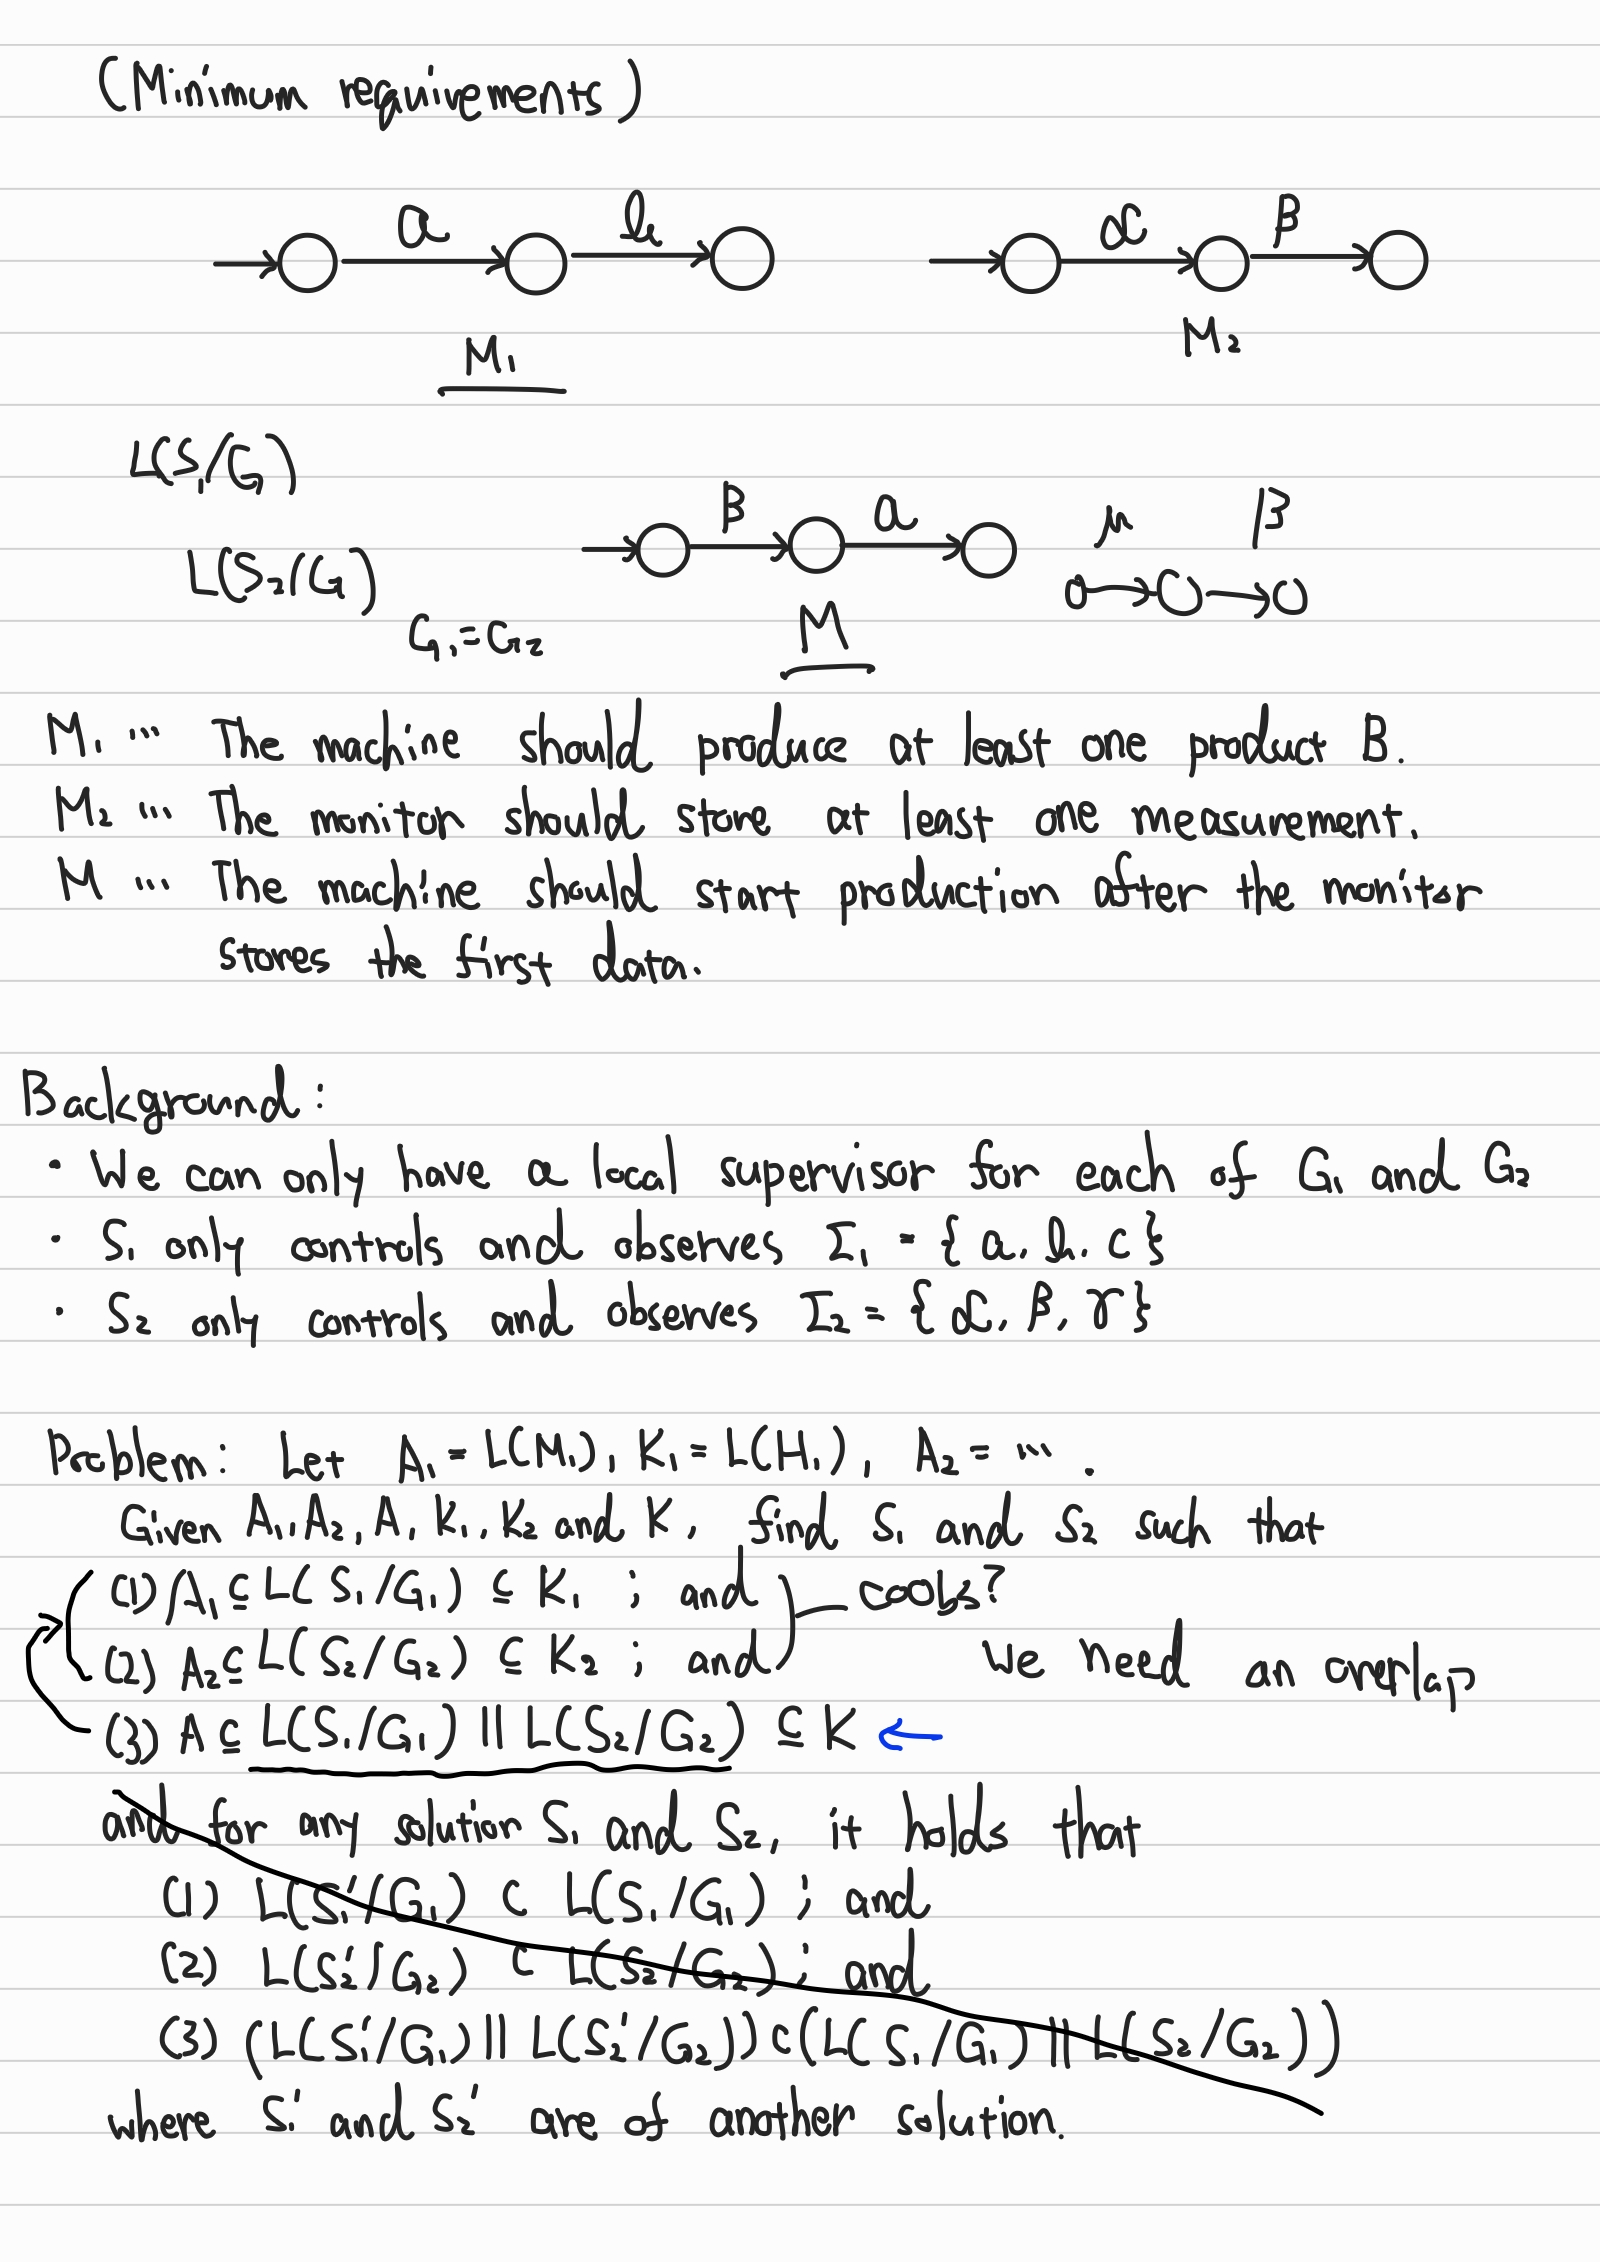 (Minimum requirements)
a b α β
M₁ M₂
L(S₁/G)
β a μ β
L(S₂/G)
G₁=G₂ M
M₁ ... The machine should produce at least one product B.
M₂ ... The monitor should store at least one measurement.
M ... The machine should start production after the monitor
stores the first data.
Background:
・ We can only have a local supervisor for each of G₁ and G₂
・ S₁ only controls and observes Σ₁ = {a, b, c}
・ S₂ only controls and observes Σ₂ = {α, β, γ}
Problem: Let A₁ = L(M₁), K₁ = L(H₁), A₂ = ... .
Given A₁, A₂, A, K₁, K₂ and K, find S₁ and S₂ such that
(1) A₁ ⊆ L(S₁/G₁) ⊆ K₁ ; and coobs?
(2) A₂ ⊆ L(S₂/G₂) ⊆ K₂ ; and We need an overlap
(3) A ⊆ L(S₁/G₁) || L(S₂/G₂) ⊆ K ←
and for any solution S₁ and S₂, it holds that
(1) L(S₁'/G₁) ⊂ L(S₁/G₁) ; and
(2) L(S₂'/G₂) ⊂ L(S₂/G₂) ; and
(3) (L(S₁'/G₁) || L(S₂'/G₂)) ⊂ (L(S₁/G₁) || L(S₂/G₂))
where S₁' and S₂' are of another solution.